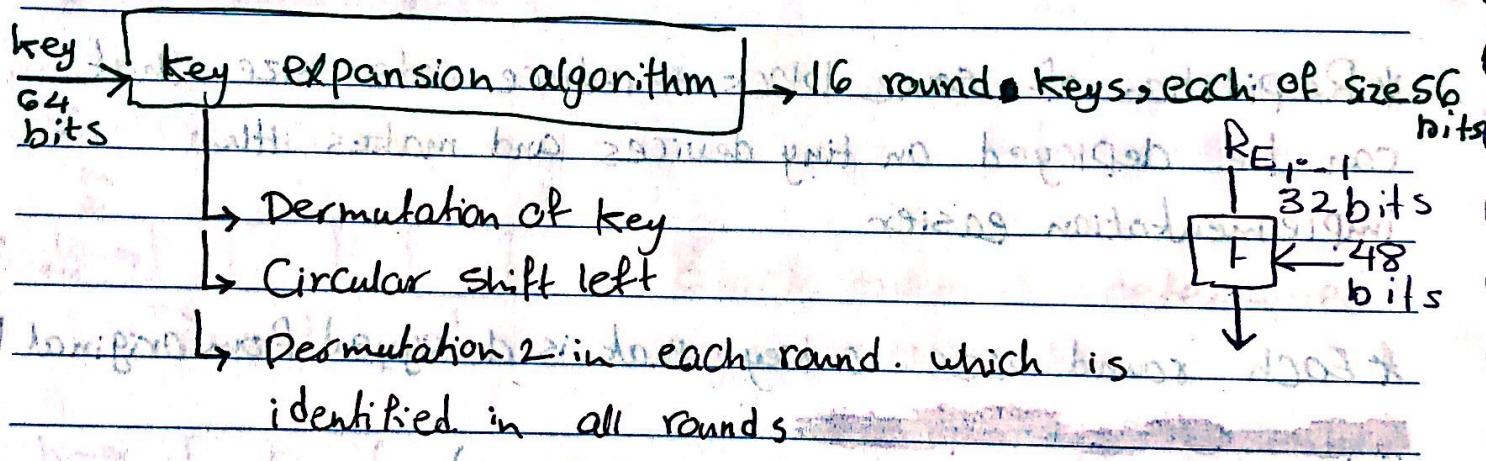 key
64
bits
key expansion algorithm → 16 round keys, each of size 56
bits
RE i-1
32 bits
→ Permutation of key
→ Circular shift left
F ← 48
bits
→ Permutation 2 in each round. which is
identified in all rounds